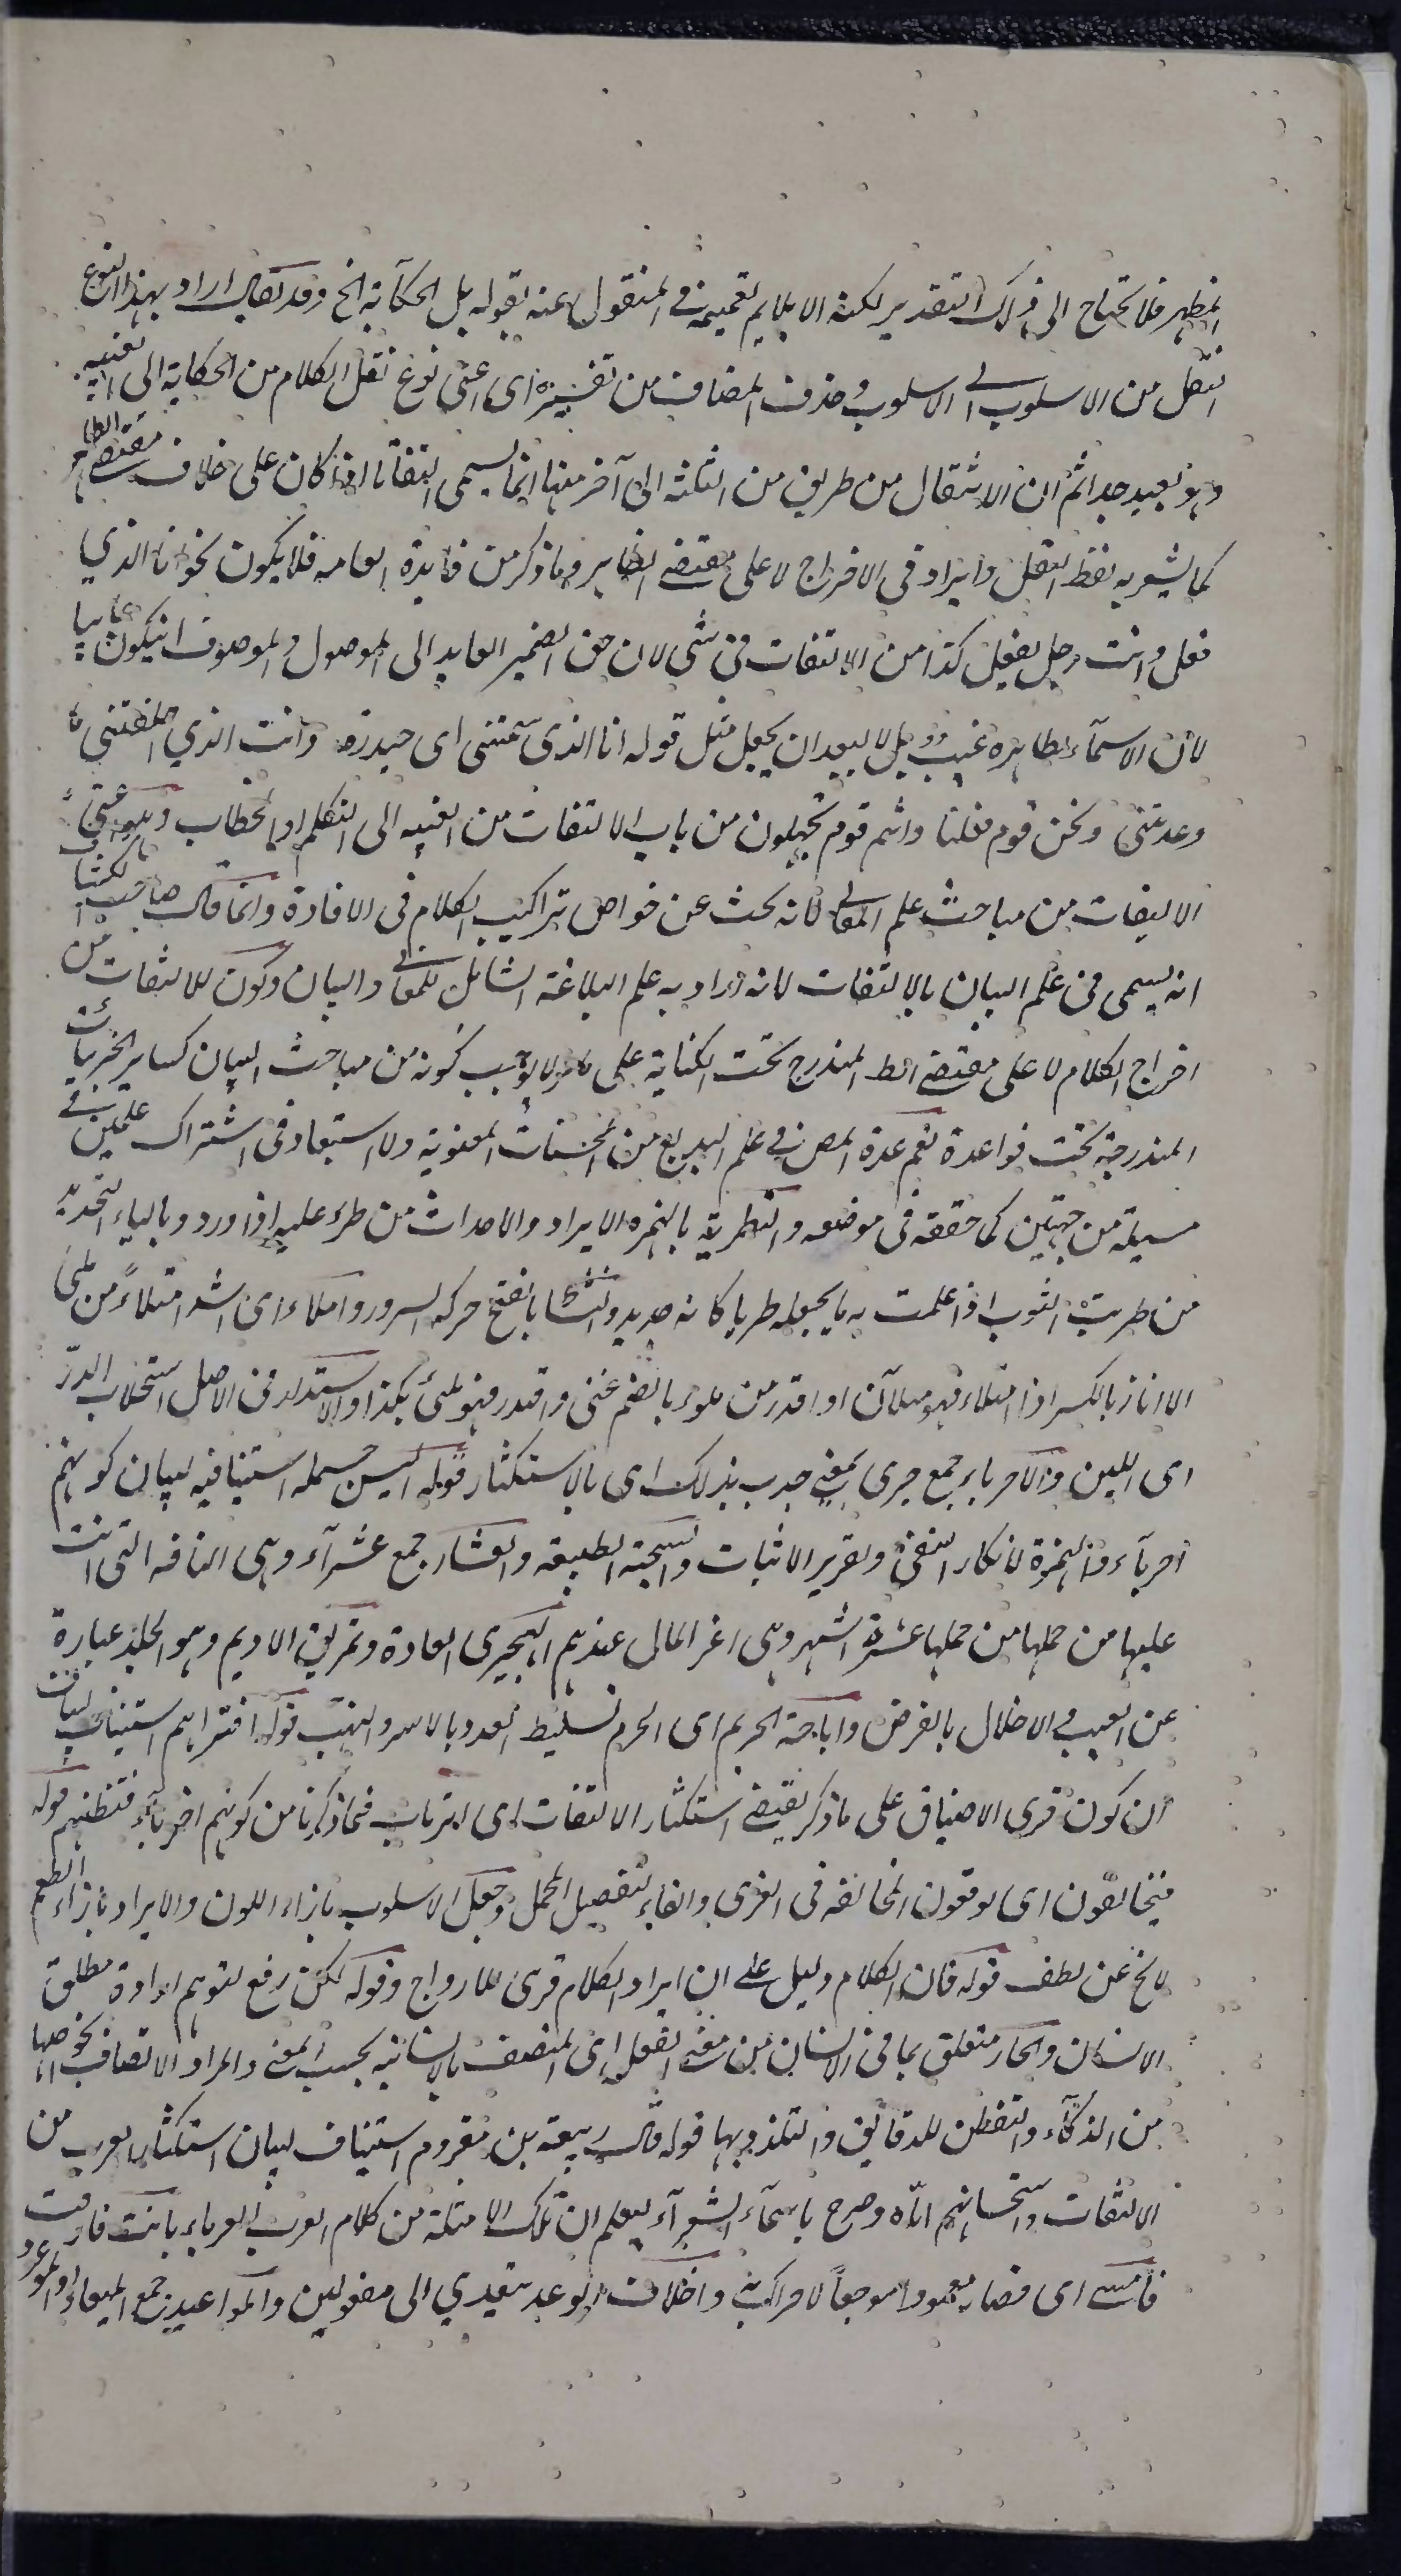 المظهر فلا تحتاج الى ذلك التقدير لكنه لا يلايم تعميمه في المنقول عنه بقوله بل الحكاية الخ وقد يقال اراد بهذا النوع
نقل من الاسلوب الى الاسلوب وحذف المضاف من تفسيره اى اعنى نوع نقل الكلام من الحكاية الى الغيبه
وهو بعيد جدا ثم ان الانتقال من طريق من الثلثه الى آخر منها انما يسمى التفاتا اذا كان على خلاف مقتضى الظاهر
كما يشعر به لفظ النقل وايراده فى الاخراج لا على مقتضى الظاهر وما ذكر من فايدة العامه فلا يكون نحو انا الذي
فعل وانت رجل يفعل كذا من الالتفات فى شى لان حق الضمير العايد الى الموصول والموصوف ان يكون غايبا
لان الاسمآء الظاهره غيب بل لا يبعد ان يجعل مثل قوله انا الذى سمتنى امى حيدره وانت الذي اخلفتنى ما
وعدتنى ونحن قوم فعلنا وانتم قوم تجهلون من باب الالتفات من الغيبه الى التكلم او الخطاب
الالتفات من مباحث علم المعانى لانه يحث عن خواص تراكيب الكلام فى الافادة وانما قال صاحب الكشاف
انه يسمى فى علم البيان بالالتفات لانه اراد به علم البلاغة الشامل للمعانى والبيان وكون الالتفات من
اخراج الكلام لا على مقتضى الظ المندرج تحت الكناية على ما مر لا يوجب كونه من مباحث البيان كساير الجزئيات
المندرجة تحت قواعدة نعم عده المص فى علم البديع من المحسنات المعنوية ولا استبعاد فى اشتراك علمين فى
مسيلة من جهتين كما حققه فى موضعه والتطرية بالهمزه الايراد والاحداث من طرء عليه اذا ورد وبالياء التجديد
من طريت الثوب اذا علمت به ما يجعله طريا كانه جديد ونشاطا بالفتح حركه السرور واملاء اى اشد امتلاءً من ملئ
الاناء بالكسر اذا امتلاء فهو ملآن او اقدر من ملوء بالضم غنى واقتدر فهو ملئ بكذا والاستدرار فى الاصل استحلاب الدرّ
اى اللبن والاحرياء جمع حرى بمعنى جدير بذلك اى بالاستكثار قوله اليس جمله استينافيه لبيان كونهم
احريآء والهمزة لانكار النفى وتقرير الاثبات والسجية الطبيعه والعشار جمع عشرآء وهى الناقه التى اتت
عليها من حملها عشرة اشهر وهى اعز المال عندهم الهجيرى العادة وتمزيق الاديم وهو الجلد عبارة
عن العيب والاخلال بالغرض واباحة الحريم اى الحرم تسليط العدو بالاسر والنهب قوله افتراهم استيناف لبيان
ان كون قرى الاضياف على ما ذكر يقتضى استكثار الالتفات اى ارتياب فيما ذكرنا من كونهم احريآء فتظنهم قوله
فيخالفون اى يوقعون المخالفه فى القرى والفاء لتفصيل المجمل وجعل الاسلوب بازاء اللون والايراد بازاء الطعم
لا يخ عن لطف قوله فان الكلام دليل على ان ايراد الكلام قرى للارواح وقوله لكن رفع لتوهم ارادة مطلق
الانسان والجار متعلق بما فى الانسان من معنى الفعل اى المتصف بالانسانيه بحسب المعنى والمراد الاتصاف بخواصها
من الذكآء والتفطن للدقايق والتلذذ بها قوله قال ربيعة بن مقروم استيناف لبيان استكثار العرب من
الالتفات واستحسانهم اياه وصرح باسمآء الشعرآء ليعلم ان تلك الامثلة من كلام العرب العرباء بانت فارقت
فامسى اى فصار معمودا موجعاً لافراكه واخلاف الوعد يتعدي الى مفعولين والمواعيد جمع الميعاد او الموعود